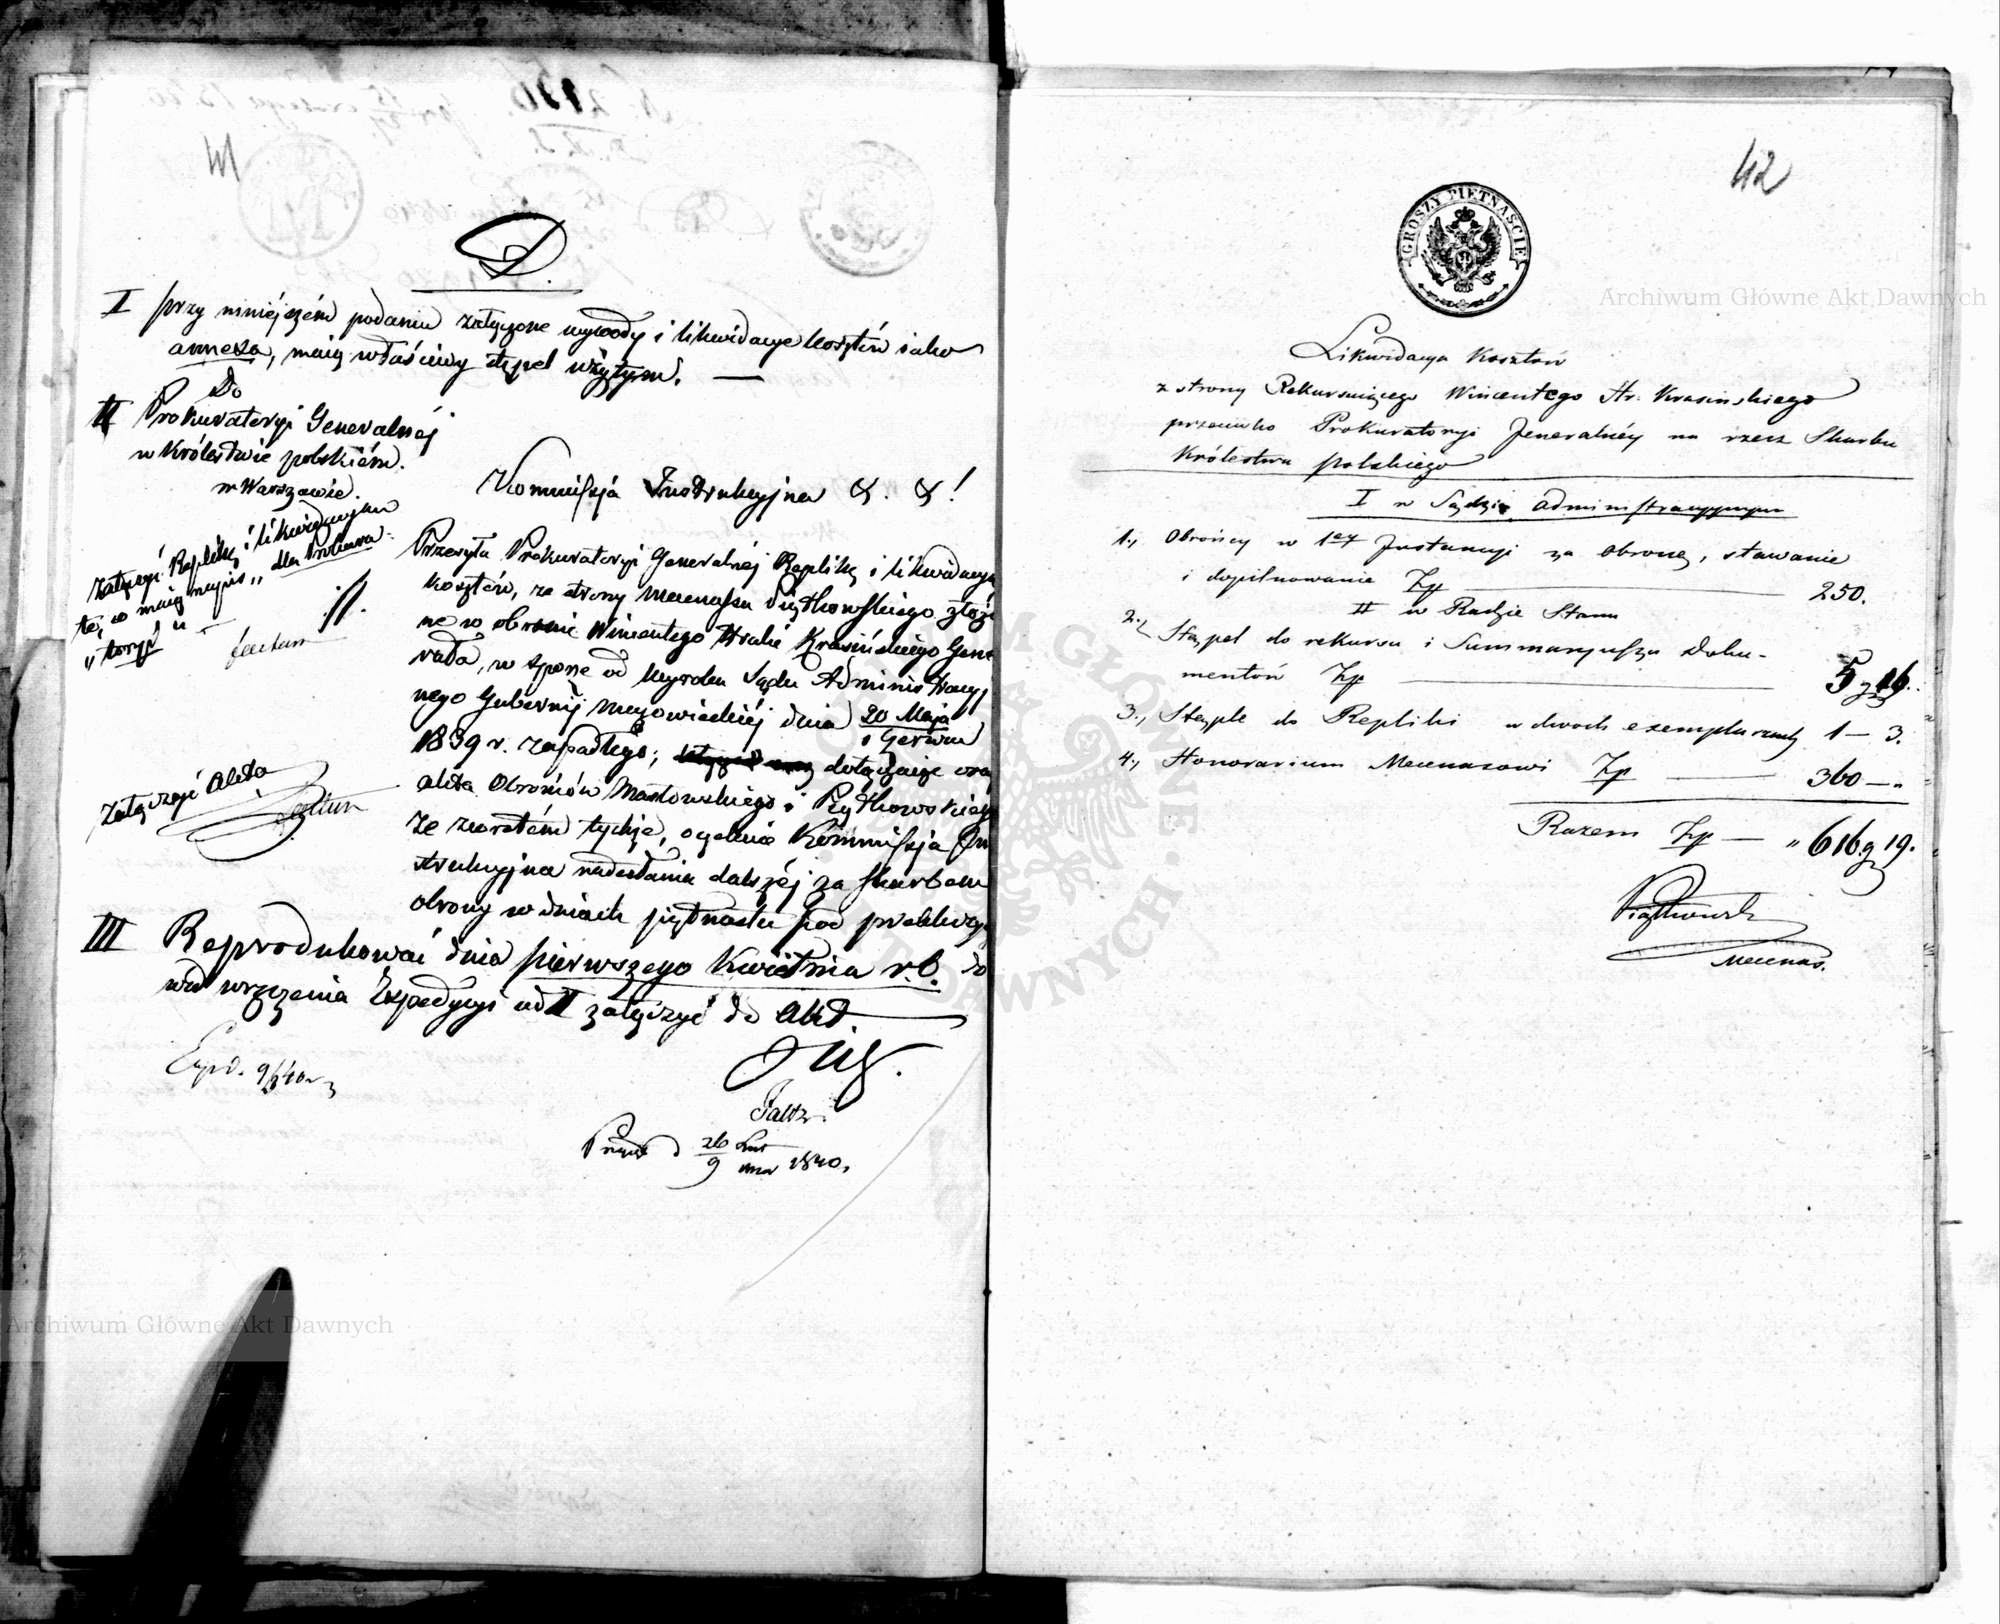 41
D.
I przy niniejszém podaniu załączone wywody i likwidacye kosztów iako
annexa, maią właściwy stępel użytym. —
II Do
Prokuratoryi Generalnéj
w Królestwie polskiém.
w Warszawie.
Kommissja Instrukcyjna &. &!
załączyć Replikę i likwidacyą
tę, co maią napis „dla Prokura-
„toryi"
factum
Przesyła Prokuratoryi Generalnéj Replikę i likwidacyą
kosztów, ze strony Mecenasa Piątkowskiego złożo
ne w obronie Wincentego Hrabi Krasińskiego Gene
rała, w sporze od wyroku Sądu Administracyj
nego Gubernij Mazowieckiéj dnia 20 Maja
1 Czerwca
1839 r. zapadłego; dołączaiąc oraz
akta Obrońców Masłowskiego i Piątkowskiego
ze zwrotém tychże, oczekuie Kommissja In
strukcyjna nadesłania dalszéj za skarbem
obrony w dniach piętnastu pod prekluzyą
załączyć Akta
factum
III Reprodukować dnia pierwszego Kwietnia r.b. do
wód wręczenia Expedycyi ad II załączyć do Akt.
Exped. 9/3 40 r
Faltz.
26 Lut
9 mar 1840.
42
GROSZY PIĘTNAŚCIE
Likwidacya Kosztów
z strony Rekursuiącego Wincentego Hr. Krasińskiego
przeciwko Prokuratoryi Jeneralnéy na rzecz Skarbu
Królestwa polskiego
I w Sądzie administracyjnym
1., Obrońcy w 1éy Instancyi za obronę, stawanie
i dopilnowanie Zp — 250.
II w Radzie Stanu
2., Stępel do rekursu i Summaryusza Doku-
mentów Zp — 5 g 16.
3., Stęple do Repliki w dwóch exemplarzach 1 — 3.
4., Honorarium Mecenasowi Zp — 360 — „
Razem Zp — „ 616 g 19.
Piątkowski
Mecenas.
Archiwum Główne Akt Dawnych
Archiwum Główne Akt Dawnych